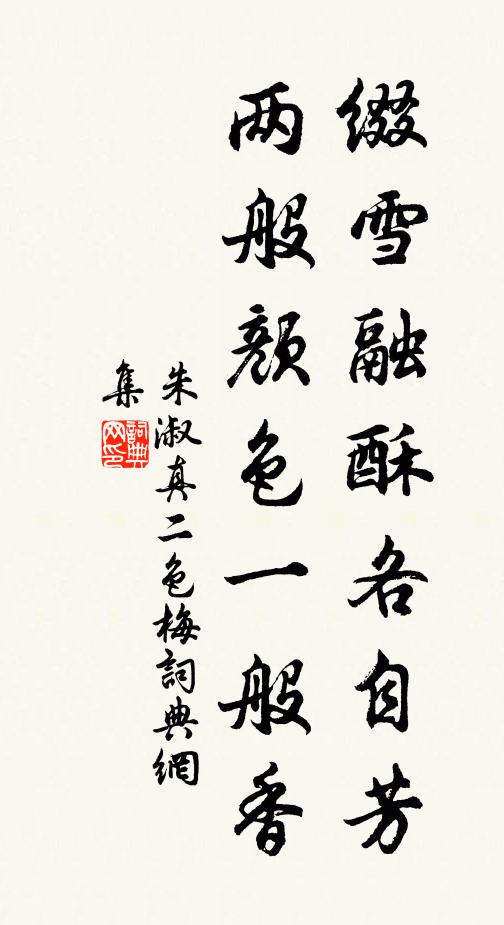 缀雪融酥各自芳
两般颜色一般香
朱淑真二色梅詞典網
集
詞典
网印